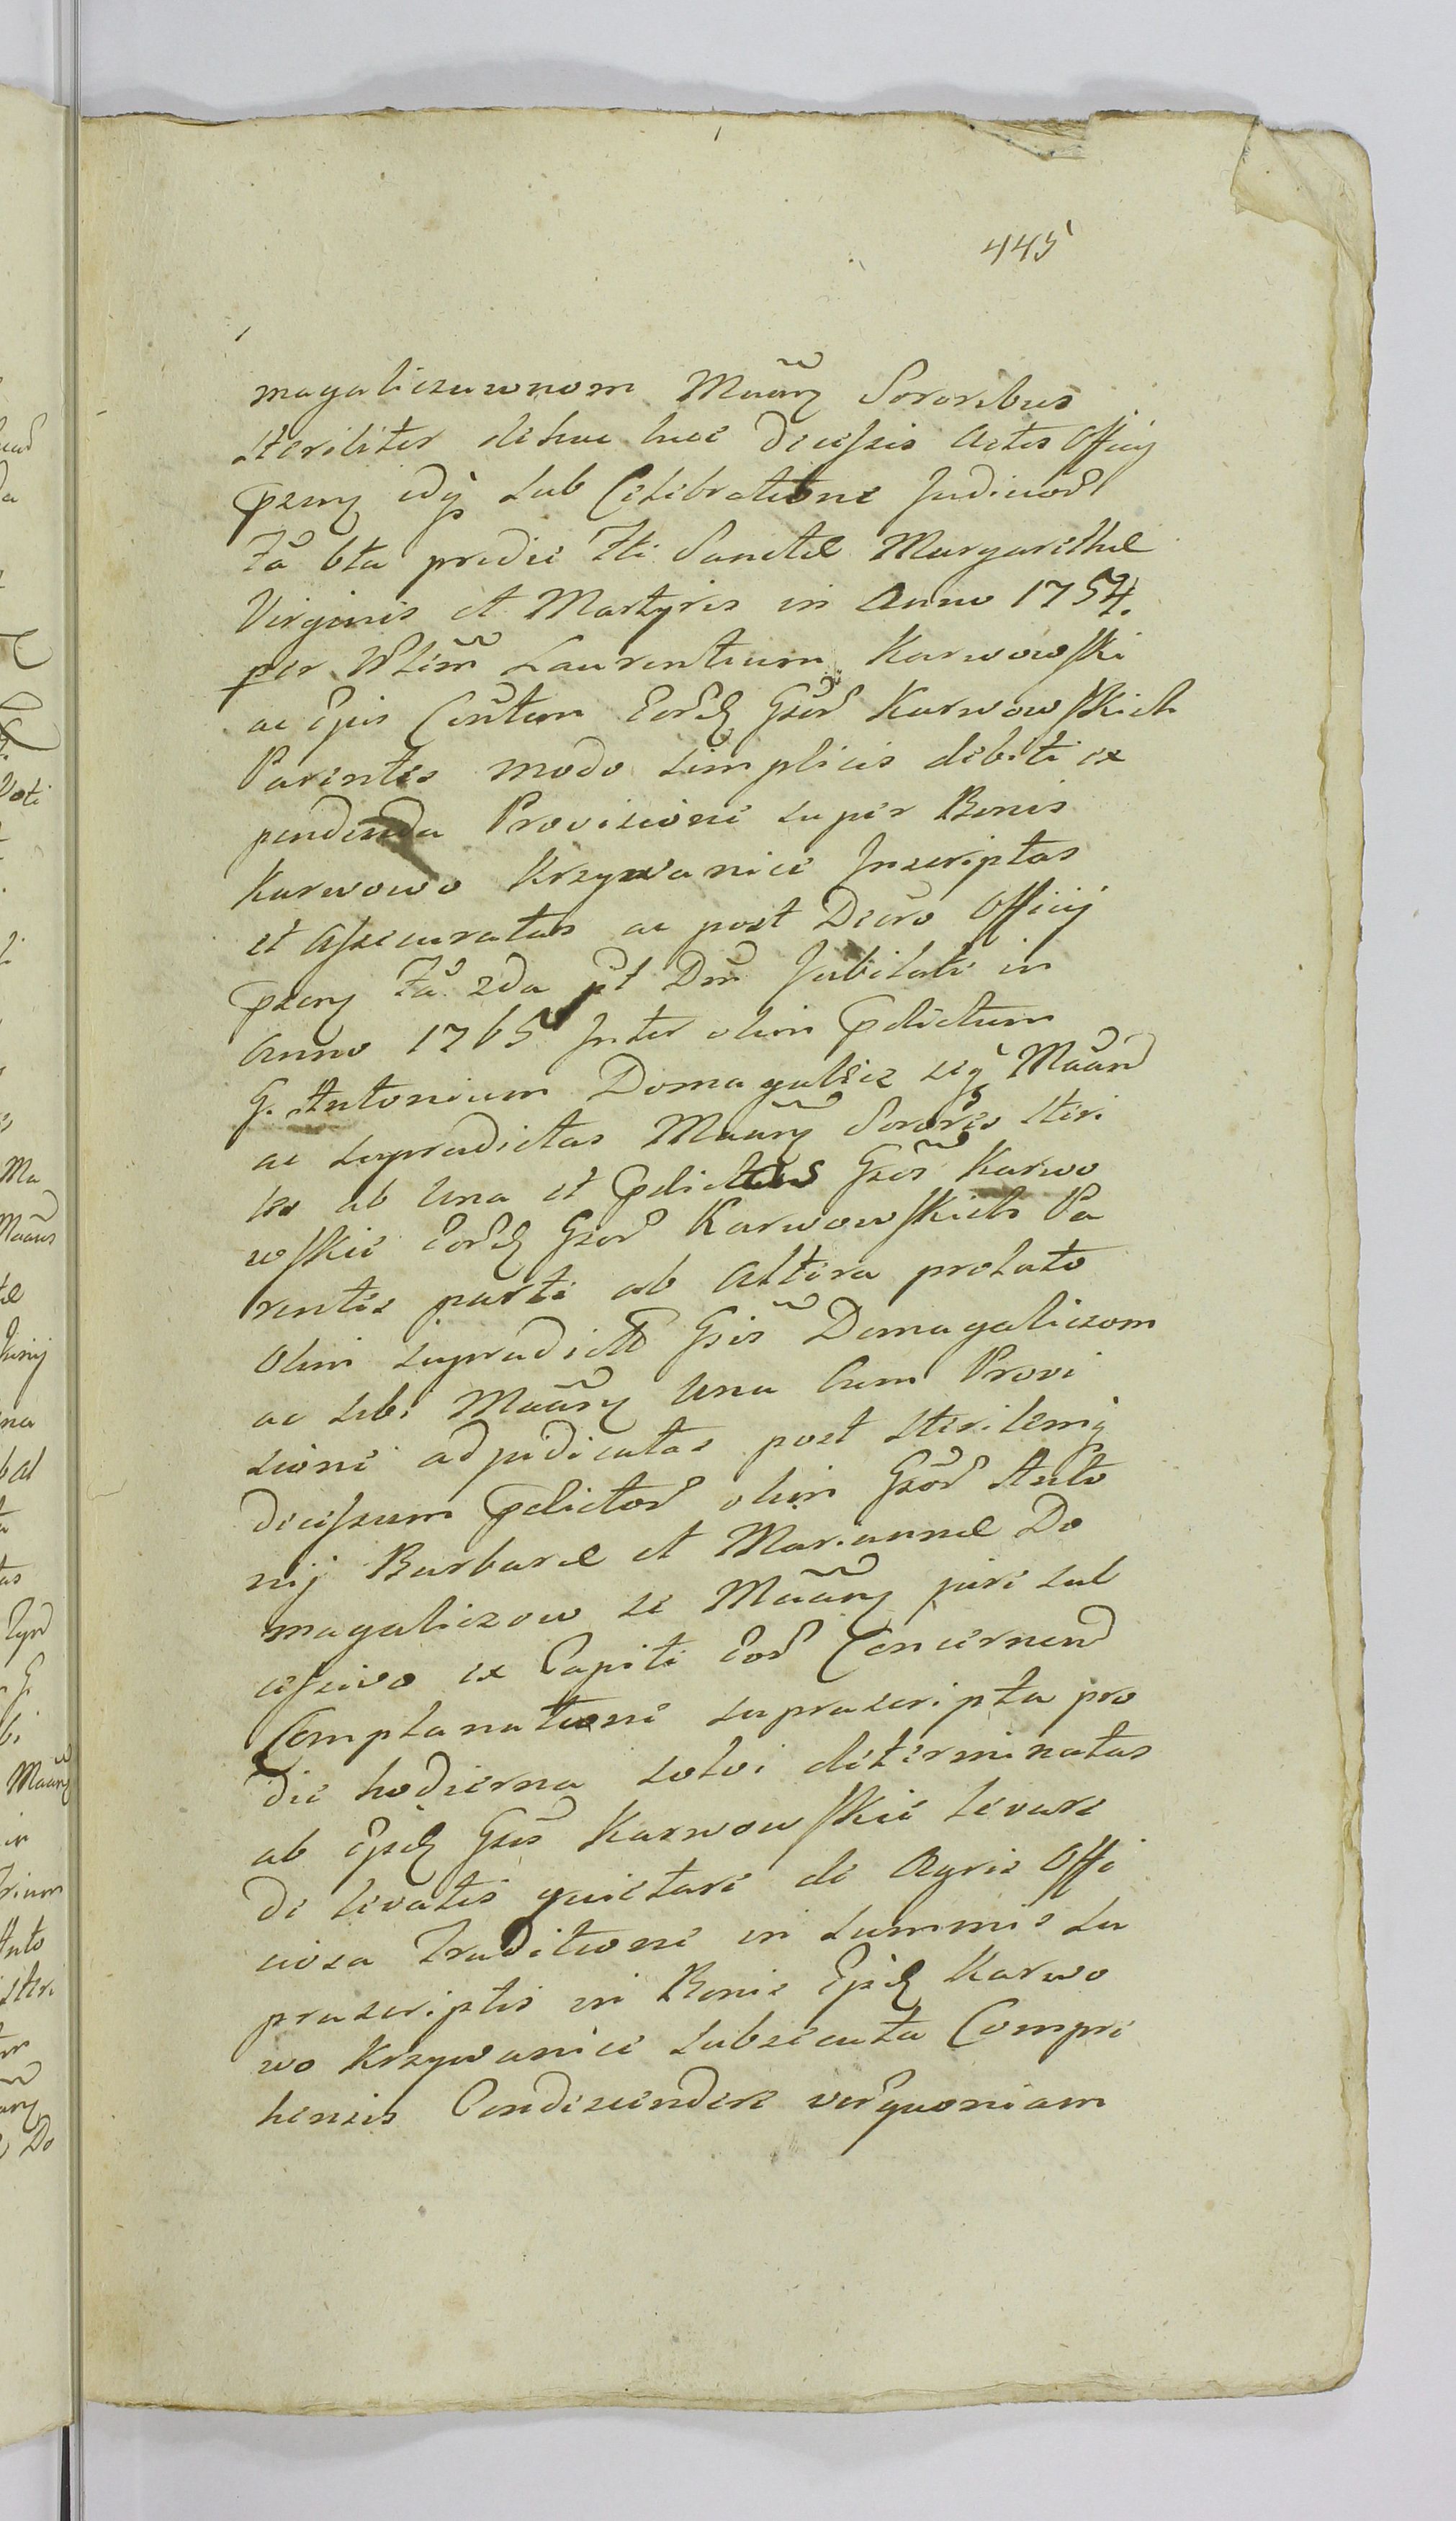 445
magaliczuwnom Maãrz Sororibus
steriliter de hac luce decessis Actis Officÿ
pzeny idq̃ sub Celebratione Judiciorũ
Fã 6ta pridie fti Sanctae Margarethae
Virginis et Martyris in Anno 1754.
per Laurentium Karwowski
ac Ejus Consten Eorũd Gsor̃ Karwowskich
Parentes modo simplicis debiti ex
pendenda Provisione super Bonis
Karwowo Krzywanice Inscriptas
et Assecuratas ac post Decro Officÿ
pzeny Fã 2da pt Dm̃ Jubilate in
Anno 1765 Inter olim pdictum
G. Antonium Domagalicz seq̃ Maãrz
ac supradictas Maãrz Sorores Steri
les ab una et pdictos Gsos̃ Karwo
wskie Eorũd Gsor̃ Karwowskich Pa
rentes parte ab altera prolato
olim supradictis Gsis̃ Domagaliczom
ac sibi Maãrz una cum Provi
sione adjudicatas post sterilemq̃
decessum pdictor̃ olim Gsor̃ Anto
nij Barbarae et Mariannae Do
magaliczow se Maãrz jure suc
cessivo ex Capite Eor̃ Concernen̄
Complanatione suprascripta pro
die hodierna solvi determinatas
ab Ijsd Gsis̃ Karwowskie levare
de levatis quietare de Agris Offi
ciosa Traditione in summis su
prascriptis in Bonis Ijsd Karwo
wo Krzywanice subsecuta Compre
hensis Condescendere verq̃ quoniam